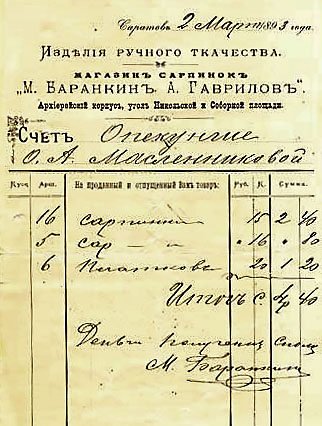 Саратовъ 2 Марта 1893 года.
Издѣлія ручного ткачества.
МАГАЗИНЪ САРПИНОКЪ
„М. Баранкинъ, А. Гавриловъ“.
Архіерейскій корпусъ, уголъ Никольской и Соборной площади.
Счетъ Опекунше
О. А. Масленниковой
Куск. Арш. На проданный и отпущенный Вамъ товаръ: Руб. К. Сумма.
16 сарпинки 15 2 40
5 сар — „ — „ 16 „ 80
6 Платковъ 20 1 20
Итогъ с. 4 р 40
Деньги получены сполна
М. Баранкинъ